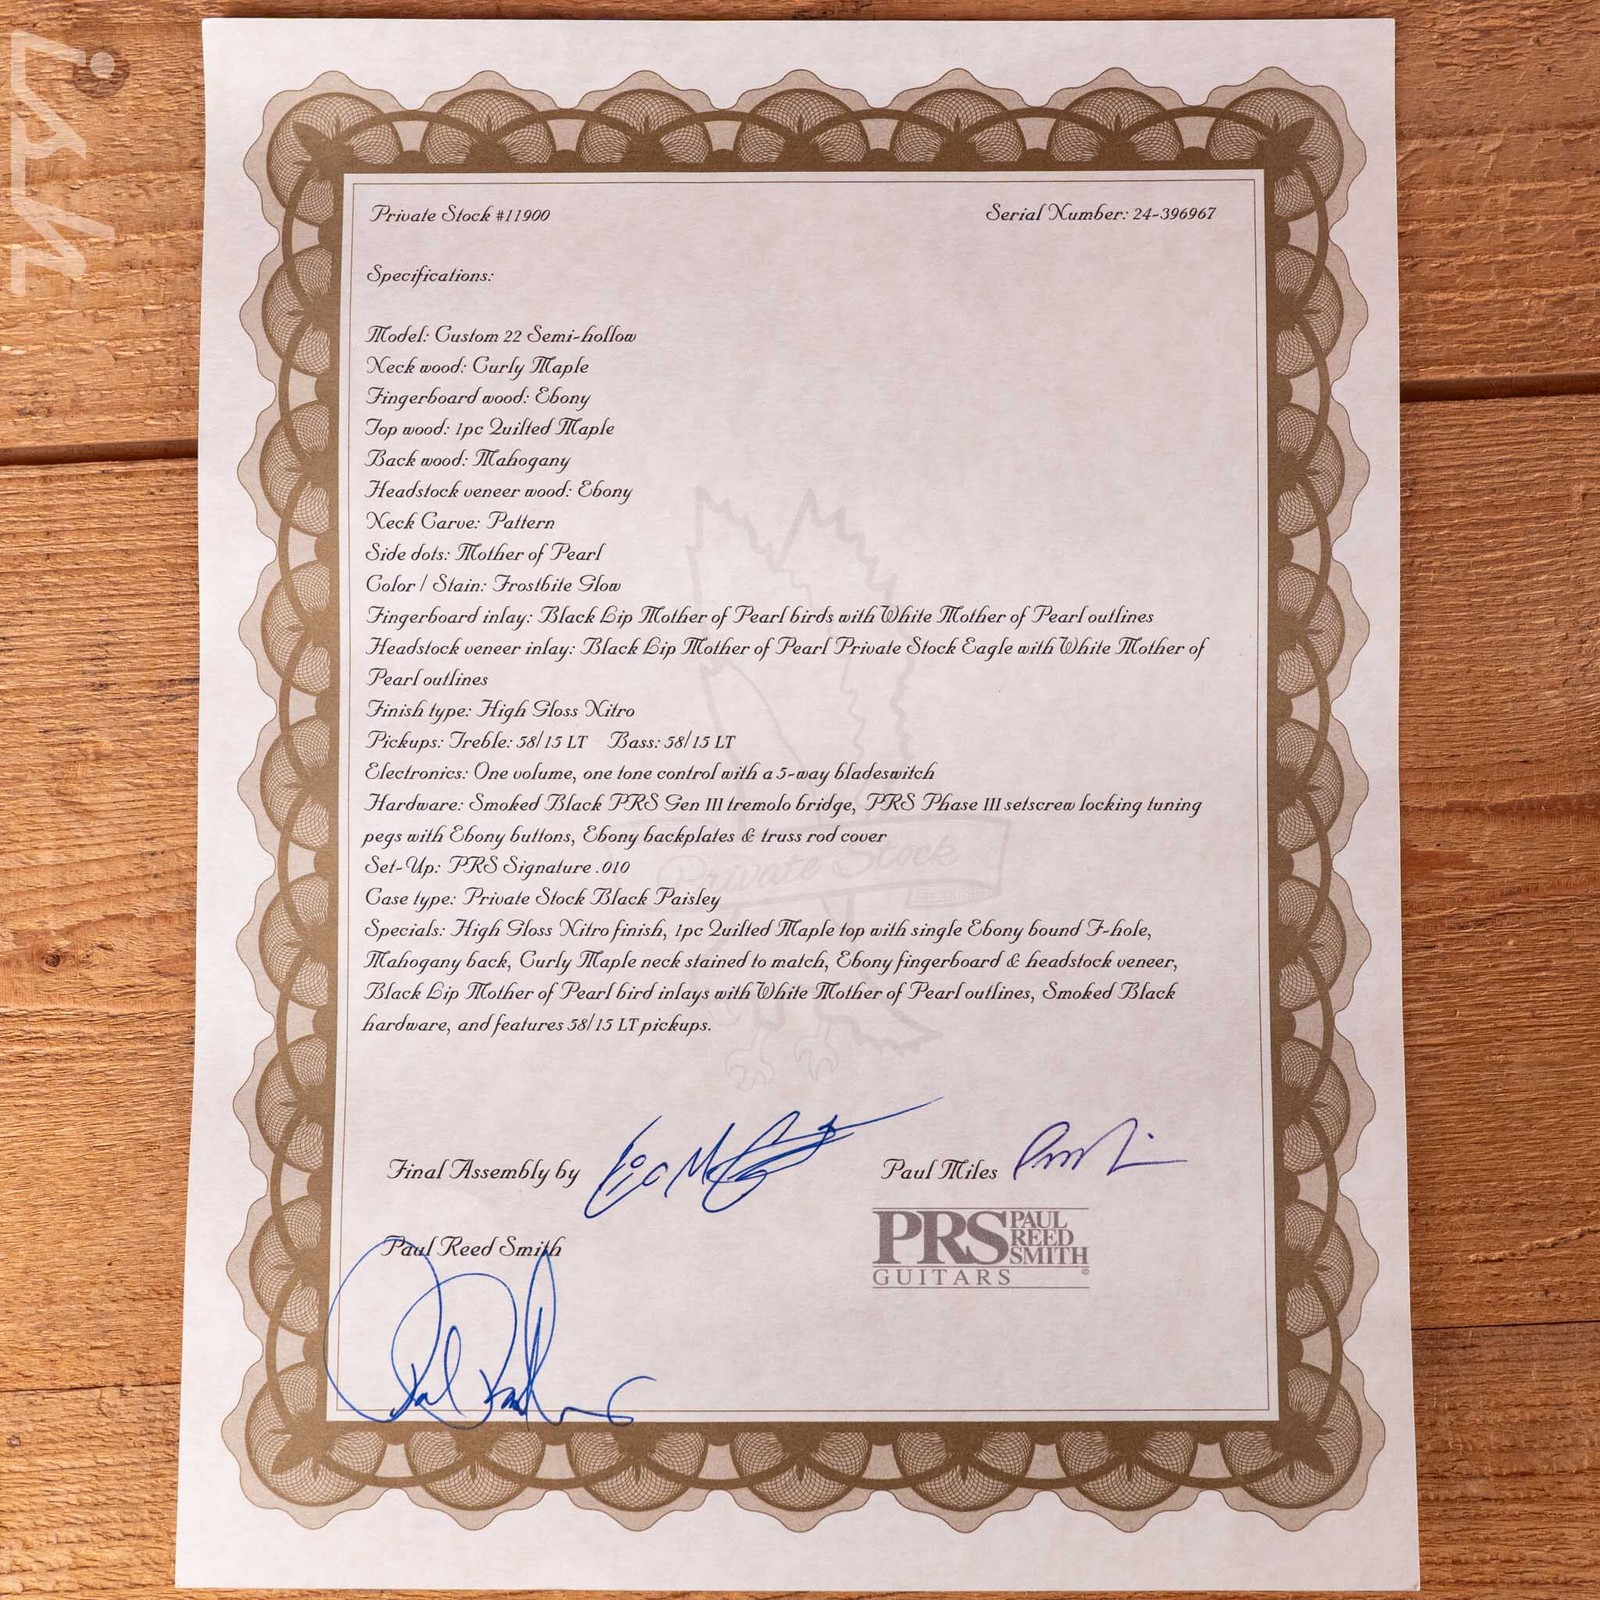 Private Stock #11900
Serial Number: 24-396967
Specifications:
Model: Custom 22 Semi-hollow
Neck wood: Curly Maple
Fingerboard wood: Ebony
Top wood: 1pc Quilted Maple
Back wood: Mahogany
Headstock veneer wood: Ebony
Neck Carve: Pattern
Side dots: Mother of Pearl
Color / Stain: Frostbite Glow
Fingerboard inlay: Black Lip Mother of Pearl birds with White Mother of Pearl outlines
Headstock veneer inlay: Black Lip Mother of Pearl Private Stock Eagle with White Mother of
Pearl outlines
Finish type: High Gloss Nitro
Pickups: Treble: 58/15 LT Bass: 58/15 LT
Electronics: One volume, one tone control with a 5-way bladeswitch
Hardware: Smoked Black PRS Gen III tremolo bridge, PRS Phase III setscrew locking tuning
pegs with Ebony buttons, Ebony backplates & truss rod cover
Private Stock
Set-Up: PRS Signature .010
Case type: Private Stock Black Paisley
Specials: High Gloss Nitro finish, 1pc Quilted Maple top with single Ebony bound F-hole,
Mahogany back, Curly Maple neck stained to match, Ebony fingerboard & headstock veneer,
Black Lip Mother of Pearl bird inlays with White Mother of Pearl outlines, Smoked Black
hardware, and features 58/15 LT pickups.
Final Assembly by
Paul Miles
Paul Reed Smith
PRS PAUL
REED
SMITH
GUITARS